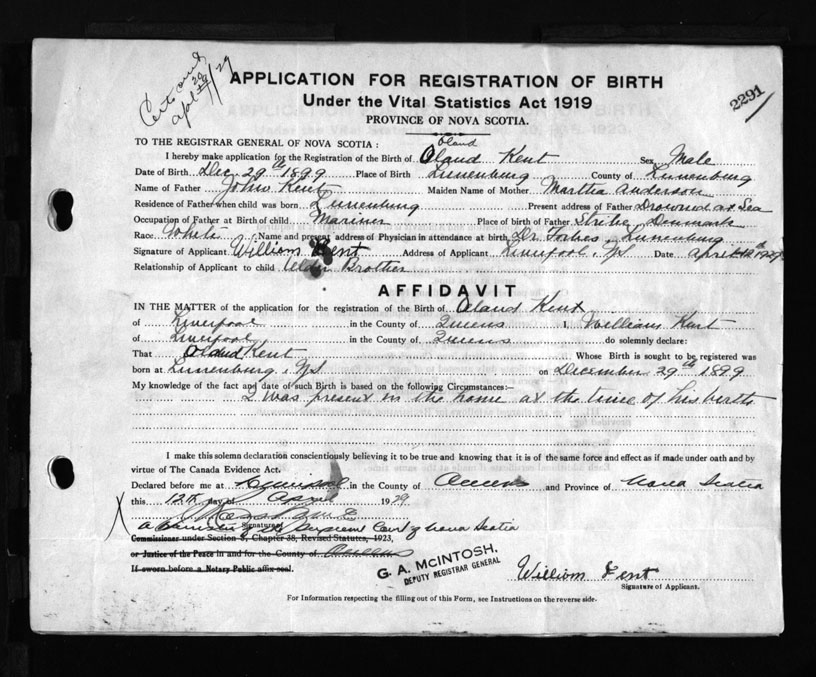 Certs and
Apl 20/29
APPLICATION FOR REGISTRATION OF BIRTH
2291
Under the Vital Statistics Act 1919
PROVINCE OF NOVA SCOTIA.
TO THE REGISTRAR GENERAL OF NOVA SCOTIA:
Oland
I hereby make application for the Registration of the Birth of Oland Kent Sex Male
Date of Birth Dec. 29th 1899 Place of Birth Lunenburg County of Lunenburg
Name of Father John Kent Maiden Name of Mother Martha Anderson
Residence of Father when child was born Lunenburg Present address of Father Drowned at Sea
Occupation of Father at Birth of child Mariner Place of birth of Father Denmark
Race White Name and present address of Physician in attendance at birth Dr. Forbes, Lunenburg
Signature of Applicant William Kent Address of Applicant Liverpool, NS Date April 12th 1929
Relationship of Applicant to child Older Brother
AFFIDAVIT
IN THE MATTER of the application for the registration of the Birth of Oland Kent
of Liverpool in the County of Queens I, William Kent
of Liverpool in the County of Queens do solemnly declare:
That Oland Kent Whose Birth is sought to be registered was
born at Lunenburg, NS. on December 29th 1899
My knowledge of the fact and date of such Birth is based on the following Circumstances:—
I was present in the home at the time of his birth
I make this solemn declaration conscientiously believing it to be true and knowing that it is of the same force and effect as if made under oath and by
virtue of The Canada Evidence Act.
Declared before me at Liverpool in the County of Queens and Province of Nova Scotia
this 12th day of April 1929
Signature
A Barrister of the Supreme Court of Nova Scotia
Commissioner under Section 3, Chapter 38, Revised Statutes, 1923,
or Justice of the Peace in and for the County of Queens
If sworn before a Notary Public affix seal.
G. A. McINTOSH,
DEPUTY REGISTRAR GENERAL
William Kent
Signature of Applicant.
For Information respecting the filling out of this Form, see Instructions on the reverse side.